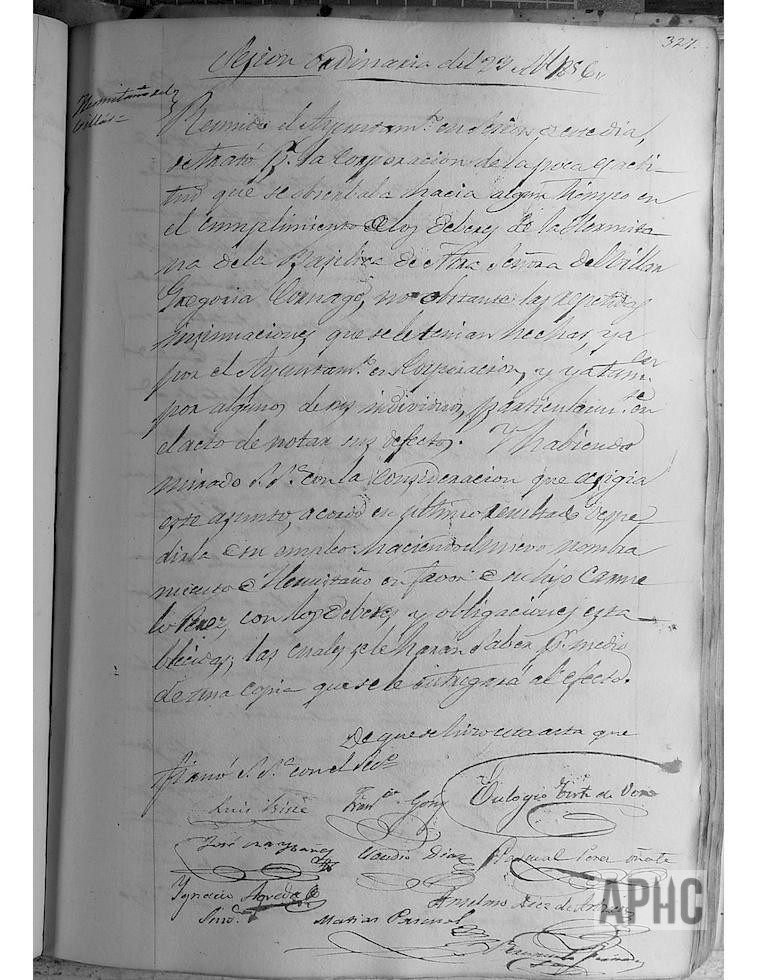 327.
Sesion ordinaria del 23 Nbre 1856,,
Hermitaño del
Villar =
Reunido el Ayuntamto en sesion de este dia,
se trató pr la Corporacion de la poca exacti-
tud que se obserbaba hacia algun tiempo en
el cumplimiento de los deberes de la Hermita-
na de la Basilica de Ntra Señora del Villar
Gregoria no obstante las repetidas
insinuaciones que se le tenian hechas, ya
por el Ayuntamto en Corporacion, y ya tam-
por algunos de sus individuos particularmte en
el acto de notar sus defectos. Y habiendo
mirado S. Sa con la consideracion que exigia
este asunto, acordó en ultimo resultado despe-
dirla de su empleo haciendo el nuevo nombra
miento de Hermitaño en favor de su hijo Carme
lo Perez, con los deberes y obligaciones esta-
blecidas; las cuales se le haran saber pr medio
de una copia que se le entregará al efecto.
De que se hizo esta acta que
firmó S. Sa con el Srio
Luis
Franco Gomz
Eulogio de
José
Claudio Diaz
Pascual Perez Oñate
Ygnacio
Sind.
Matias Pascual
Anselmo de
APHC